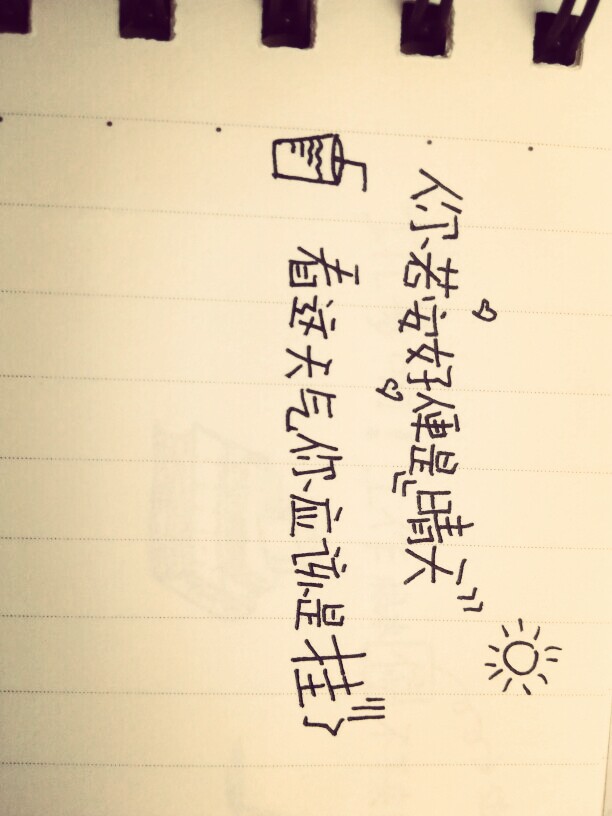 你若安好便是晴天
看这天气你应该是挂了